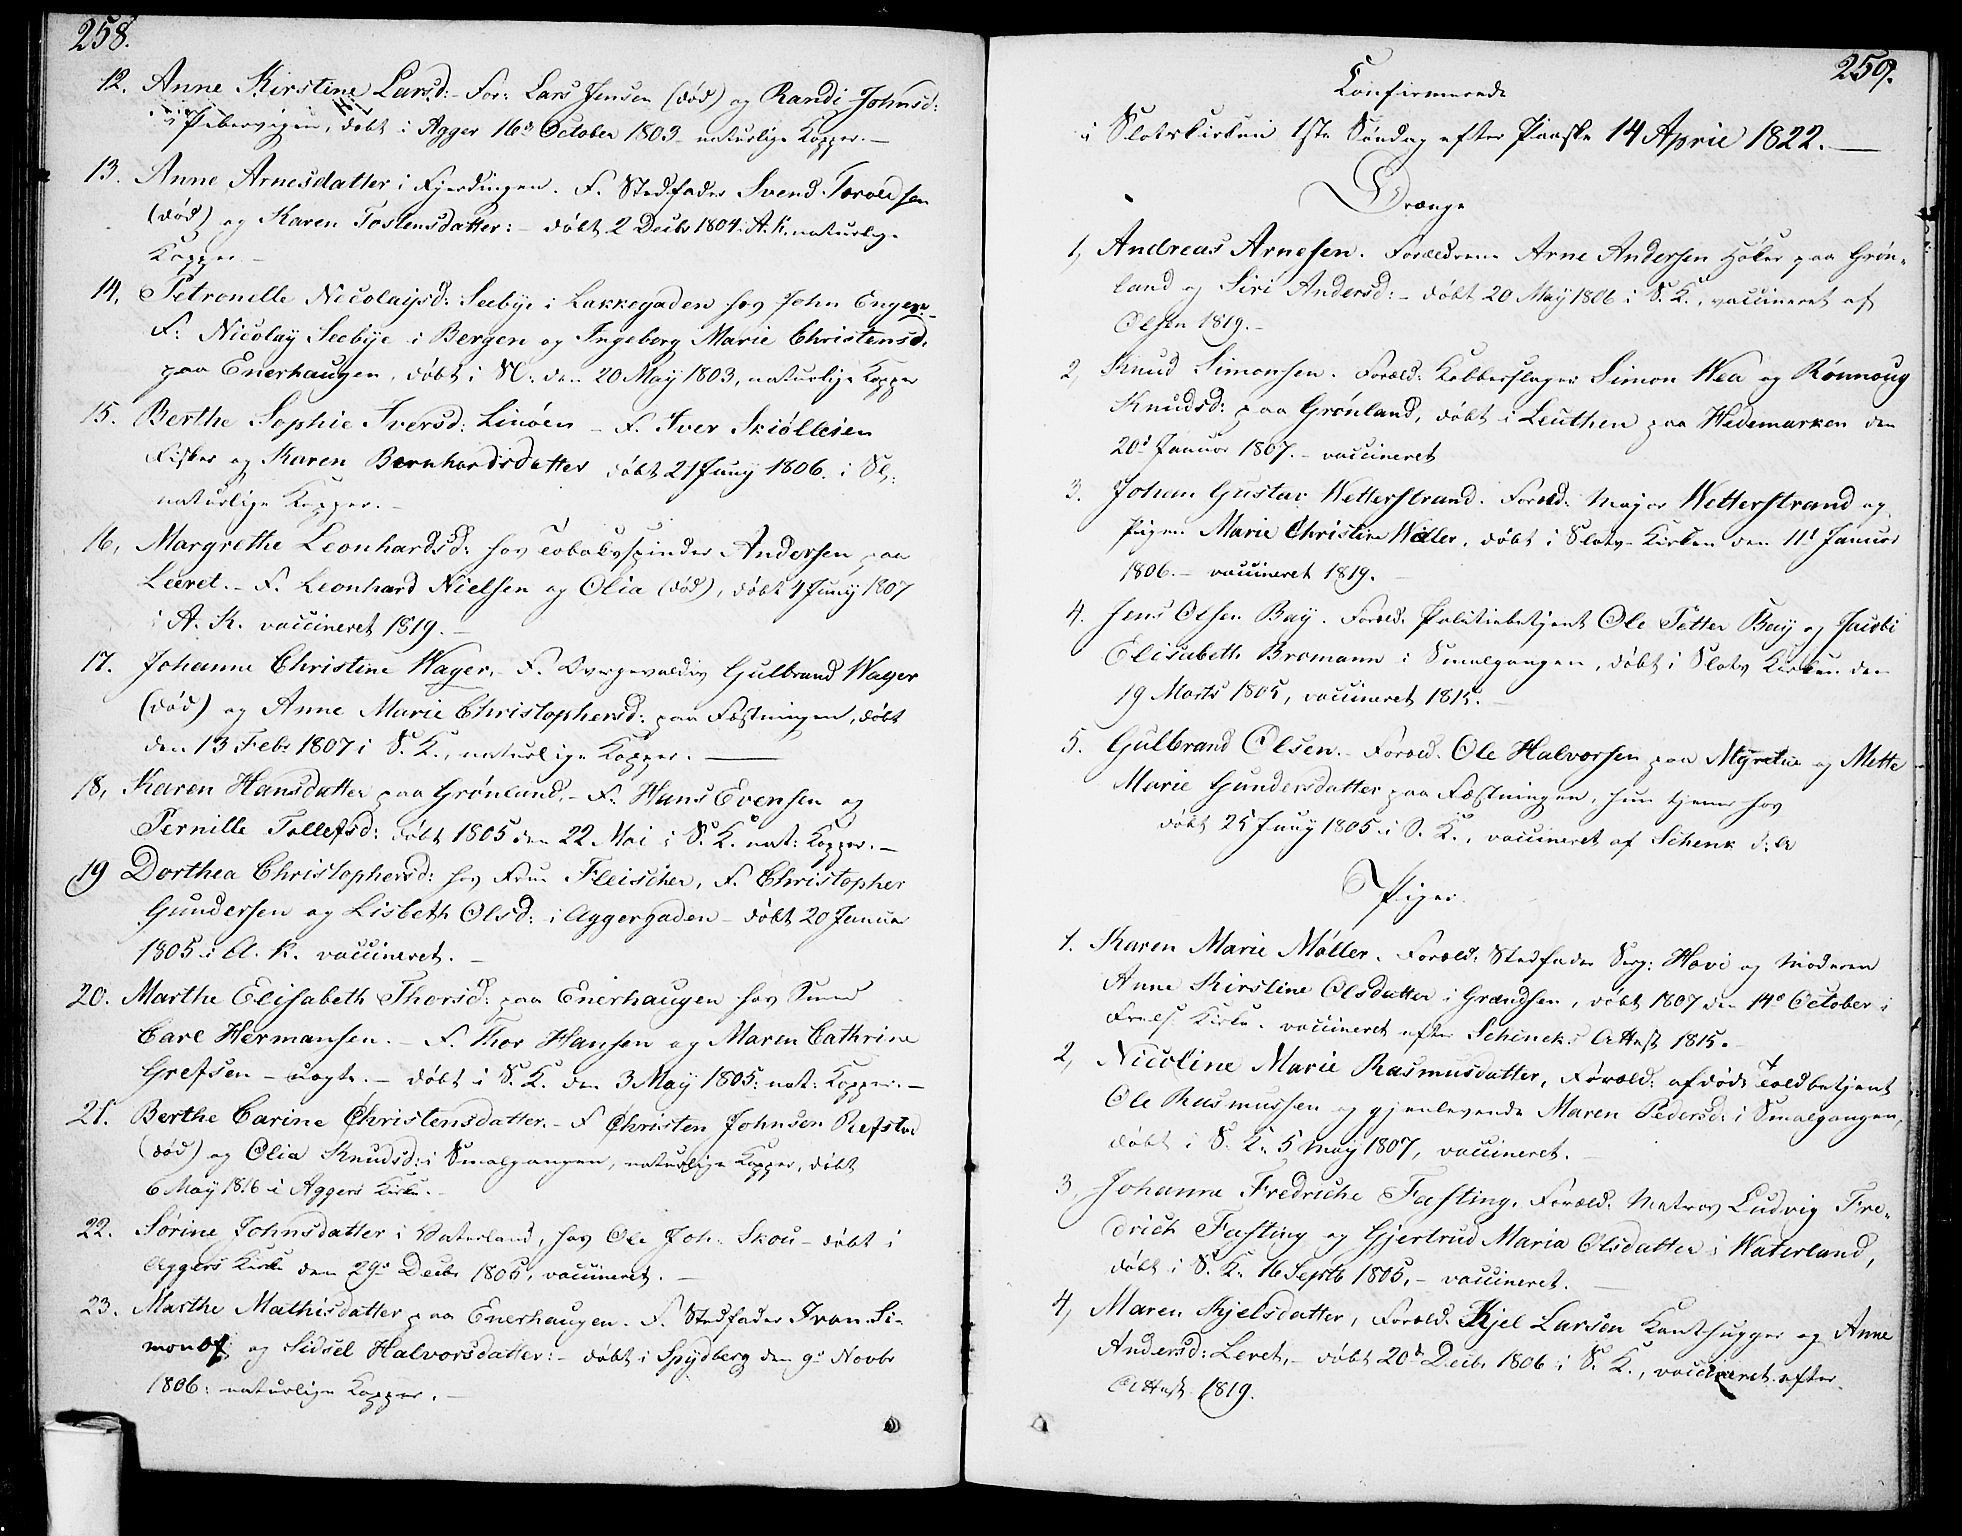 258.
12. Anne Kirstine Larsd: - For: Lars Jensen (død) og Randi Johnsd:
i Pibervigen, døbt i Agger 16d October 1803 - naturlige Kopper. -
13. Anne Arnesdatter i Fjerdingen. F. Stedfader Svend Torvaldsen
(død) og Karen Tostensdatter: - døbt 2 Decbr 1804. A. K. naturlige
Kopper. -
14, Petronelle Nicolaysd: Seebye i Lakkegaden hos John Engen -
F: Nicolay Seebye i Bergen og Ingeborg Marie Christensd.
paa Enerhaugen, døbt i Sl: den 20 May 1803, naturlige Kopper
15. Berthe Sophie Iversd: Linöen - F. Iver Skiöllesen
Fisker og Karen Bernhardsdatter døbt 21 Juny 1806. i Sl:
naturlige Kopper. -
16, Margrethe Leonhardsd: hos Tobakspinder Andersen paa
Leeret. - F. Leonhard Nielsen og Olia (død), døbt 4 Juny 1807
i A. K. vaccineret 1819. -
17. Johanne Christine Wager. - F. Gulbrand Wager
(død) og Anne Marie Christophersd: paa Fæstningen, døbt
den 13 Febr 1807 i S. K., naturlige Kopper. -
18, Karen Hansdatter paa Grønland. - F. Hans Evensen og
Pernille Tollefsd: døbt 1805 den 22 Mai i S. K. nat: Kopper. -
19 Dorthea Christophersd: hos Frue Fleischer, F. Christopher
Gundersen og Lisbeth Olsd: i Aggergaden - døbt 20 Januar
1805 i A. K. vaccineret. -
20. Marthe Elisabeth Thorsd: paa Enerhaugen hos Smed
Carl Hermansen. - F. Thor Hansen og Maren Cathrine
Grefsen - uægte. - døbt i S. K. den 3 May 1805: nat: Kopper. -
21. Berthe Carine Christensdatter. - F Christen Johnsen Refstad
(død) og Olia Knudsd: i Smalgangen, naturlige Kopper, døbt
6 May 1806 i Aggers Kirke. -
22. Sørine Johnsdatter i Vaterland, hos Ole Joh: Skou - døbt i
Aggers Kirke den 29d Decbr 1805, vaccineret. -
23. Marthe Mathisdatter paa Enerhaugen. F. Stedfader Iver Si-
mons: og Sidsel Halvorsdatter: - døbt i Spydberg den 9d Novbr
1806: naturlige Kopper. -
259.
Confirmerede
i Slotskirken 1ste Søndag efter Paaske 14 April 1822. -
Drenge
1, Andreas Arnesen. Forældrene Arne Andersen Høker paa Grøn-
land og Siri Andersd: - døbt 20 May 1806 i S. K., vaccineret af
Olsen 1819. -
2, Knud Simonsen. Foræld: Kobberslager Simon Wea og Rønnoug
Knudsd: paa Grønland, døbt i Leuthen paa Hedemarken den
20d Januar 1807. - vaccineret
3. Johan Gustav Wetterstrand. Foræld: Major Wetterstrand og
Pigen Marie Christine Weller, døbt i Slots-Kirken den 11d Januar
1806. - vaccineret 1819. -
4. Jens Olsen Bay. Foræld. Politiebetjent Ole Petter Bay og Jacobi
Elisabeth Bromann i Smalgangen, døbt i Slots Kirken den
19 Marts 1805, vaccineret 1815. -
5. Gulbrand Olsen. - Foræld. Ole Halvorsen paa og Mette
Marie Gundersdatter paa Fæstningen, hun tjener hos
døbt 25 Juny 1805 i S. K., vaccineret af Schenk
Piger.
1. Karen Marie Møller. Foræld: Stedfader Serg: Hovi og Moderen
Anne Kirstine Olsdatter i Grændsen, døbt 1807 den 14d October i
Frels: Kirke. vaccineret efter Schencks Attest 1815. -
2, Nicoline Marie Rasmusdatter, Foræld: afdøde Toldbetjent
Ole Rasmussen og gjenlevende Maren Pedersd: i Smalgangen,
døbt i S. K. 5 May 1807, vaccineret. -
3, Johanne Fredriche Fasting. Foræld. Matros Ludvig Fre-
drich Fasting og Gjertrud Maria Olsdatter i Waterland,
døbt i S. K. 16 Septb 1805, - vaccineret. -
4, Maren Kjelsdatter, Foræld. Kjel Larsen Kanthugger og Anne
Andersd: Leret, - døbt 20d Decbr 1806 i S. K., vaccineret efter
Attest 1819.